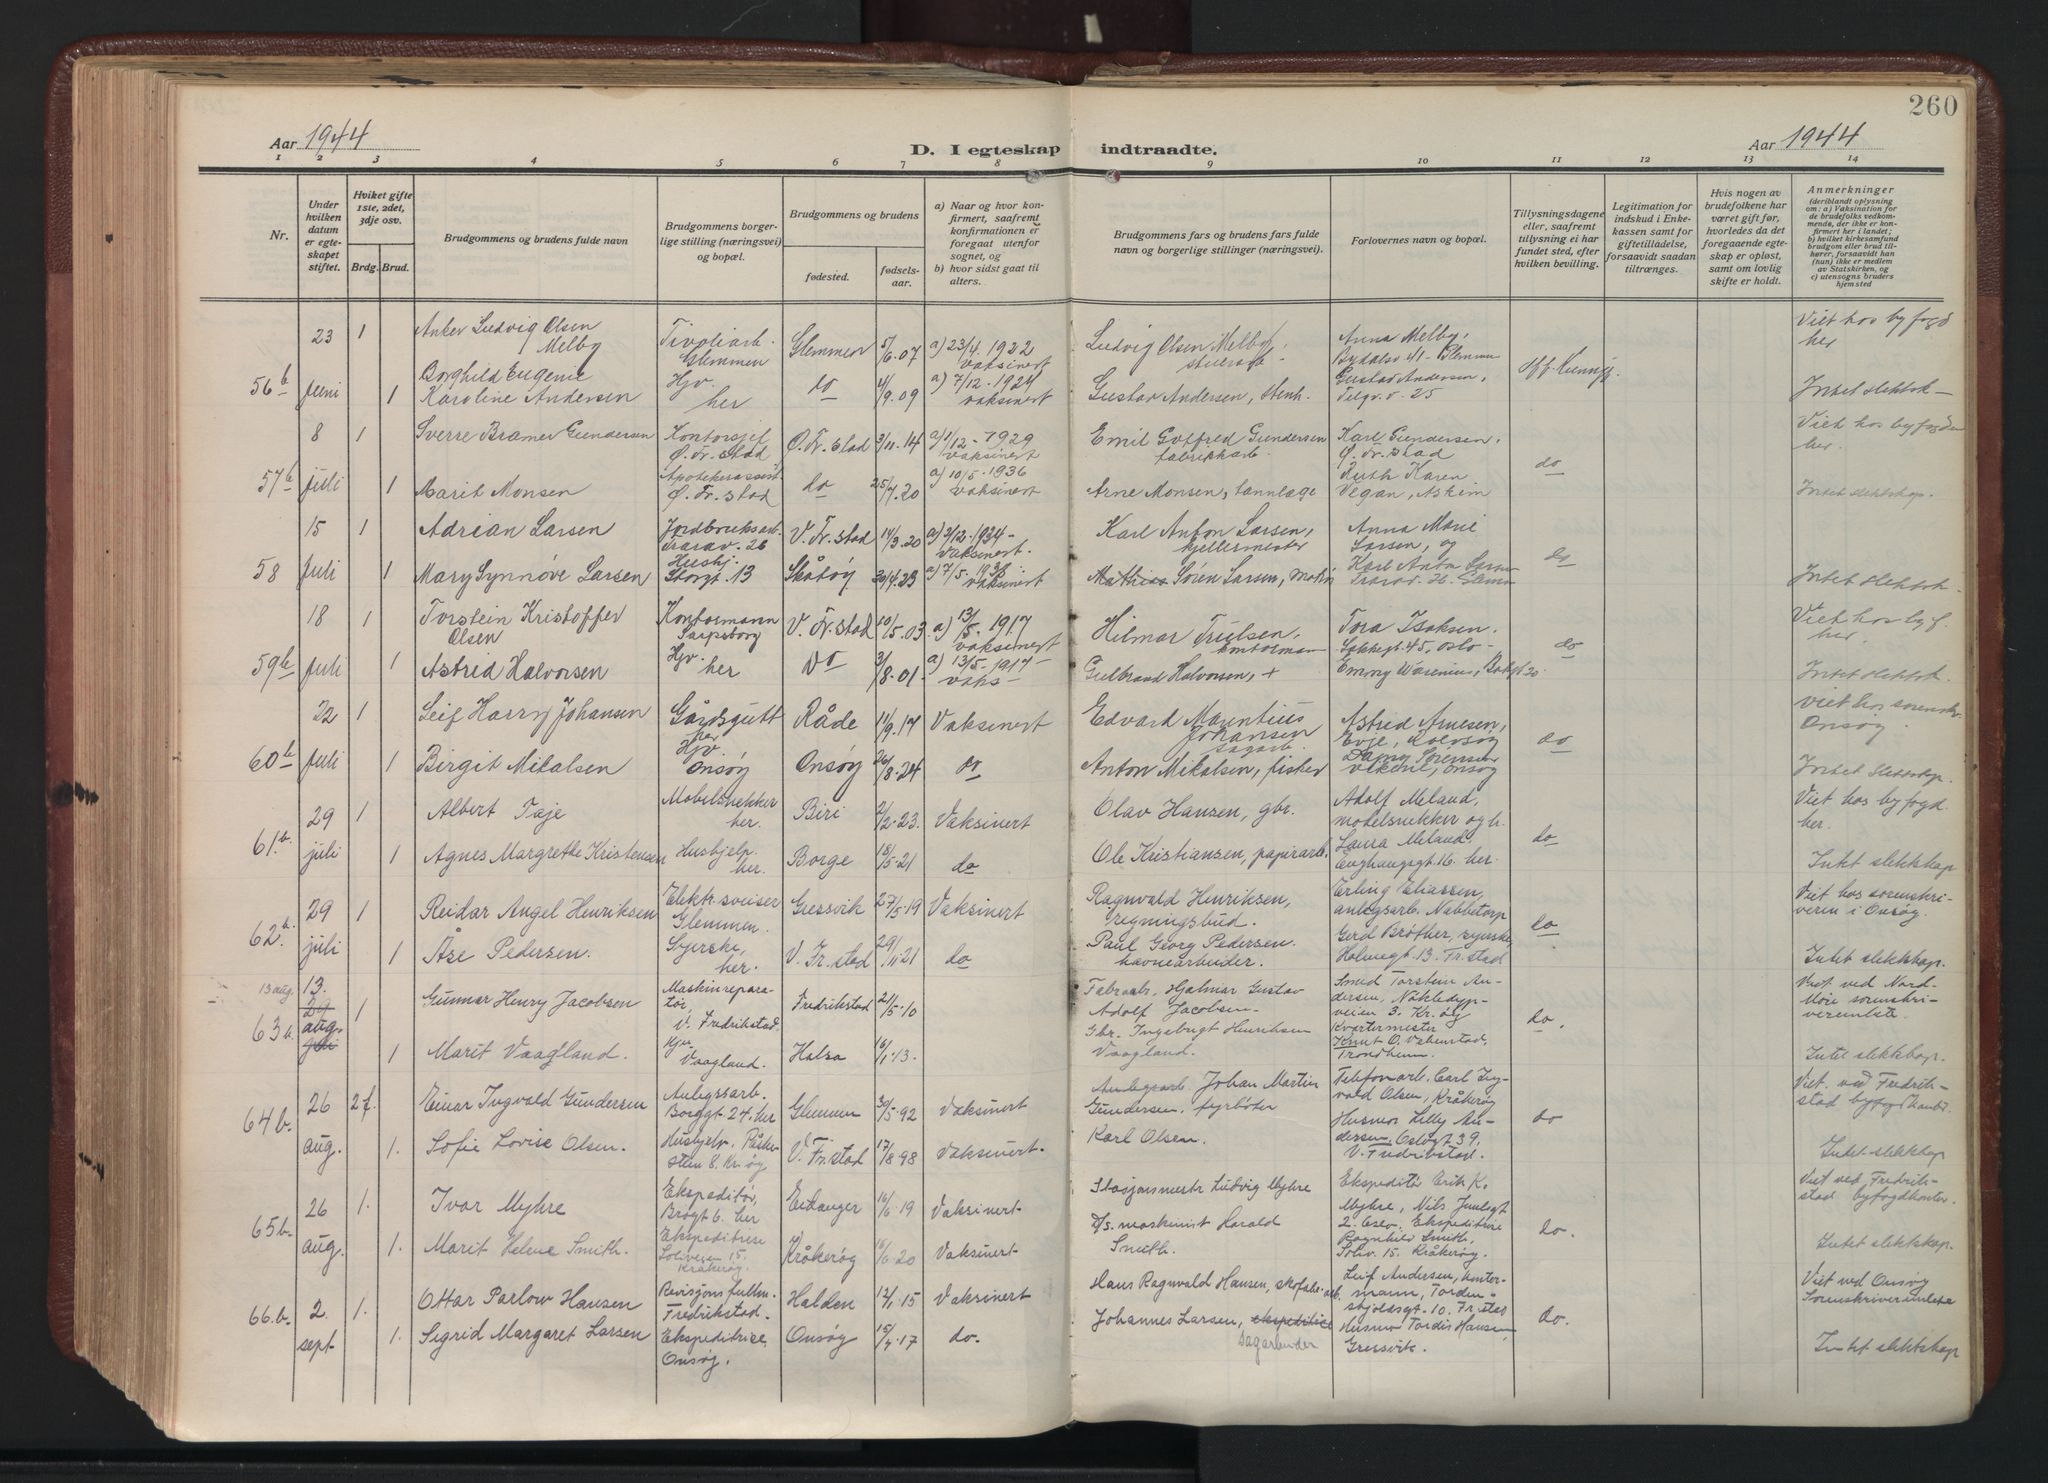 260
Aar 1944
D. I egteskap indtraadte.
Aar 1944
1 2 3 4 5 6 7 8 9 10 11 12 13 14
Nr.
Under hvilken datum er egteskapet stiftet.
Hviket gifte 1ste, 2det, 3dje osv.
Brdg. Brud.
Brudgommens og brudens fulde navn
Brudgommens borgerlige stilling (næringsvei) og bopæl.
Brudgommens og brudens
fødested.
fødselsaar.
a) Naar og hvor konfirmert, saafremt konfirmationen er foregaat utenfor sognet, og
b) hvor sidst gaat til alters.
Brudgommens fars og brudens fars fulde navn og borgerlige stillinger (næringsvei).
Forlovernes navn og bopæl.
Tillysningsdagene eller, saafremt tillysning ei har fundet sted, efter hvilken bevilling.
Legitimation for indskud i Enkekassen samt for giftetilladelse, forsaavidt saadan tiltrænges.
Hvis nogen av brudefolkene har været gift før, hvorledes da det foregaaende egteskap er opløst, samt om lovlig skifte er holdt.
Anmerkninger
(deriblandt oplysning om: a) Vaksination for de brudefolks vedkommende, der ikke er konfirmert her i landet; b) hvilket kirkesamfund brudgom eller brud tilhører, forsaavidt han (hun) ikke er medlem av Statskirken, og c) utensogns bruders hjemsted
56b 23 juni
1 Anker Ludvig Olsen Melby Tivoliarb. Glemmen Glemmen 5/6.07 a) 23/4.1922 vaksinert Ludvig Olsen Melby, Anna Melby, Viet hos byfogd her
1 Borghild Eugenie Karoline Andersen Hjv. her do 4/9.09 a) 7/12-1924 vaksinert Gustav Andersen, stenh. Gustav Andersen, 25 Intet slektsk-
57b 8 juli
1 Sverre Bramer Gundersen Kontorsjef Ø. Fr. stad Ø. Fr. stad 3/11.14 a) 1/12-1929 vaksinert Emil Gotfred Gundersen fabrikkarb. Karl Gundersen, Ø. Fr. stad do Viet hos byfogden her.
1 Marit Monsen Apotekerassist. Ø. Fr. stad do 25/7.20 a) 10/5-1936 vaksinert Arne Monsen, tannlæge Ruth Karen Vegan, Askim Intet slektskap.
58 15 Juli
1 Adrian Larsen Jordbruksarb. Trarav. 26 V. Fr. stad 14/3.20 a) 2/12-1934- vaksinert. Karl Anton Larsen, kjellermester Anna Marie Larsen, og do
1 Mary Synnøve Larsen Hushj. Storgt. 13 Skåtøy 20/4.23 a) 7/5.1938 vaksinert Mathias Søren Larsen, Karl Anton Larsen Intet slektsk-
59b 18 Juli
1 Torstein Kristoffer Olsen Kontormann Sarpsborg V. Fr. stad 10/5.03 a) 13/5-1917 vaksinert Hilmar Trulsen, kontorman Tora Isaksen, 45, Oslo- do Viet hos byf. her.
1 Astrid Halvorsen Hjv. her do 3/8.01 a) 13/5-1917- vaks- Gulbrand Halvorsen, + Emmy Warenius, Intet slektsk.
60b 22 Juli
1 Leif Harry Johansen Gårdsgutt Råde 11/9.17 Vaksinert Edvard Mauritius Johansen sagarb. Astrid Arnesen, Evje, do Viet hos sorenskr. Onsøy
1 Birgit Mikalsen Hjv. Onsøy Onsøy 26/8.24 do Anton Mikalsen, fisker Sørensen Onsøy Intet slektskp.
61.b. 29 juli
1 Albert Faje Møbelsnekker her. Biri 2/2.23. Vaksinert Olav Hansen, gbr. Adolf Meland, møbelsnekker og h. do Viet hos byfogd. her.
1 Agnes Margrethe Kristensen Hushjelp. her. Borge 18/5.21 do Ole Kristiansen, papirarb. Laura Meland. Enghaugsgt 16. her. Intet slektskap
62.b. 29 juli
1 Reidar Angel Henriksen Elektr.sveiser Glemmen. Gressvik 27/5.19 Vaksinert Ragnvald Henriksen, regningsbud. Erling Eliassen, anlegsarb. Nabbetorp do Viet hos sorenskriveren i Onsøy.
1 Åse Pedersen. Syerske, her. V. Fr. stad 29/11.21 do Paul Georg Pedersen. havnearbeider. Gerd Brøther, syerske, Holmegt. 13. Fr. stad Intet slektskap.
13 aug. 63b. 13. 29 aug. juli
1 Gunnar Henry Jacobsen Maskinreparatør, V. Fredrikstad. Fredrikstad 21/5.10 Fabr.arb. Hjalmar Gustav Adolf Jacobsen. Smed Torstein Andersen, Nøkledypveien 3. Kr.øy do. Viet ved Nordmøre sorenskriverembete.
1 Marit Vaagland. Hjv. Vaagland. Halsa 16/1.13. Gbr. Ingebrigt Henriksen Vaagland. Kvartermester Knut O. Trondheim. Intet slektskap.
64 b. 26 aug.
2 f. Einar Ingvald Gundersen Anlegssarb. Borggt 24. her Glemmen 30/5.92 Vaksinert Anlegsarb. Johan Martin Gundersen. fyrbøter Telefonarb. Carl Ingvald Olsen, Kråkerøy do Viet. ved Fredrikstad byfogdkontor.
1. Sofie Lovise Olsen. Hushjelp. 8. Kr.øy V. Fr. stad 17/8.98 Vaksinert. Karl Olsen. Husmor Lilly Andersen, Oslogt 39. V. Fredrikstad. Intet slektskap
65b. 26 aug.
1. Ivar Myhre Ekspeditør, Brøgt 6. her Eidanger 16/6.19 Vaksinert. Stasjonsmestr Ludvig Myhre Ekspeditør Erik K. Myhre, Nils Juulsgt 2. Oslo. do. Viet ved Fredrikstad byfogdkontor
1. Marit Helene Smith. Ekspeditrise Soliveien 15. Kråkerøy Kråkerøy 16/6.20 Vaksinert D/s. maskinist Harald Smith. Ekspeditrise Ragnhild Smith. Soliv. 15. Kråkerøy. Intet slektskap.
66.b. 2. sept.
1. Ottar Parlow Hansen Revisjonsfullm. Fredrikstad. Halden 12/1.15 Vaksinert Hans Ragnvald Hansen, skofabr.arb. Leif Andersen, kontormann, Tordenskjoldsgt. 10. Fr. stad do. Viet ved Onsøy Sorenskriverembete
1. Sigrid Margaret Larsen Ekspeditrise, Onsøy. Onsøy 15/4.17 do. Johannes Larsen, ekspeditrise sagarbeider Husmor Tordis Hansen, Gressvik. Intet slektskap